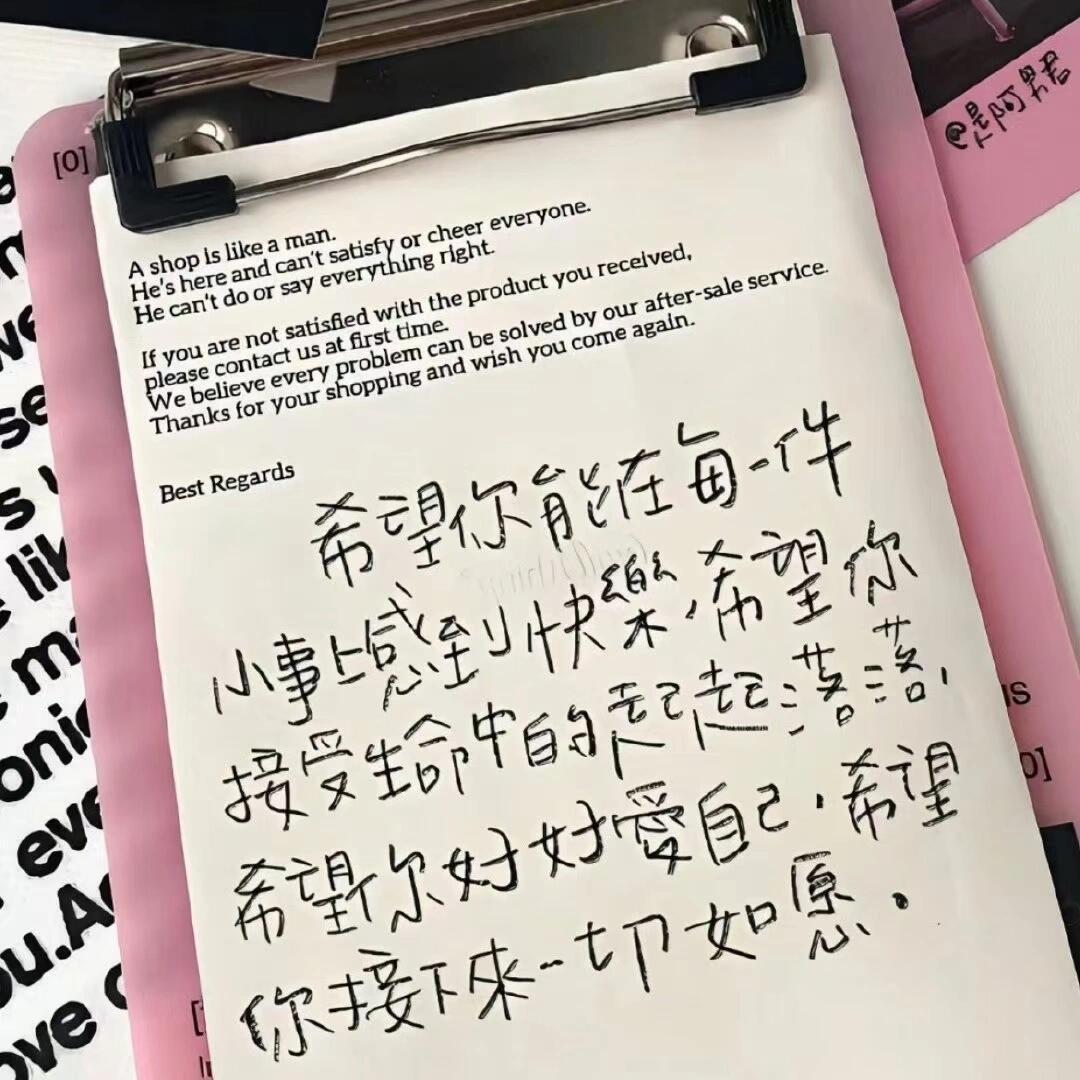 [0]
@是阿男君
A shop is like a man.
He's here and can't satisfy or cheer everyone.
He can't do or say everything right.
If you are not satisfied with the product you received,
please contact us at first time.
We believe every problem can be solved by our after-sale service.
Thanks for your shopping and wish you come again.
Best Regards
希望你能在每一件
小事上感到快樂,希望你
接受生命中的起起落落,
希望你好好愛自己,希望
你接下來一切如愿.